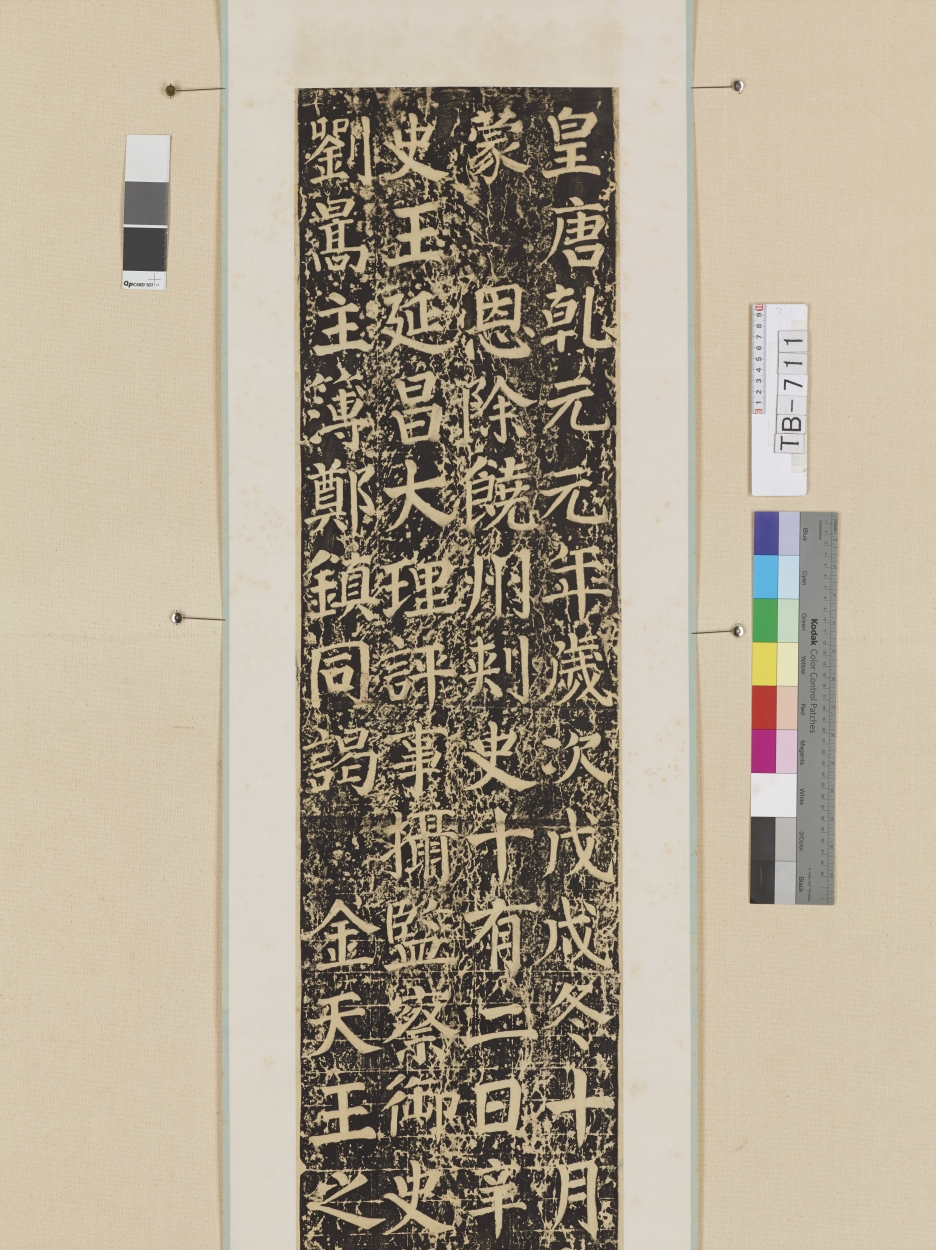 皇唐乹元元年歲次戊戌冬十月
蒙 恩除饒州刺史十有二日辛
史王延昌大理評事攝監察御史
劉暠主薄鄭鎮同謁 金天王之
QPCARD 101
TB-711
1 2 3 4 5 6 7 8 9 10
Kodak Color Control Patches
Blue
Cyan
Green
Yellow
Red
Magenta
White
3/Color
Black